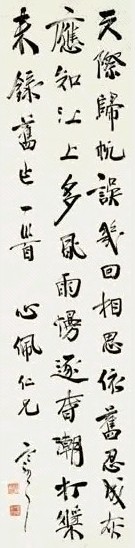 天際歸帆誤幾回相思依舊忍成灰
應知江上多風雨慢逐春潮打槳
來錄舊作一首 心佩仁兄